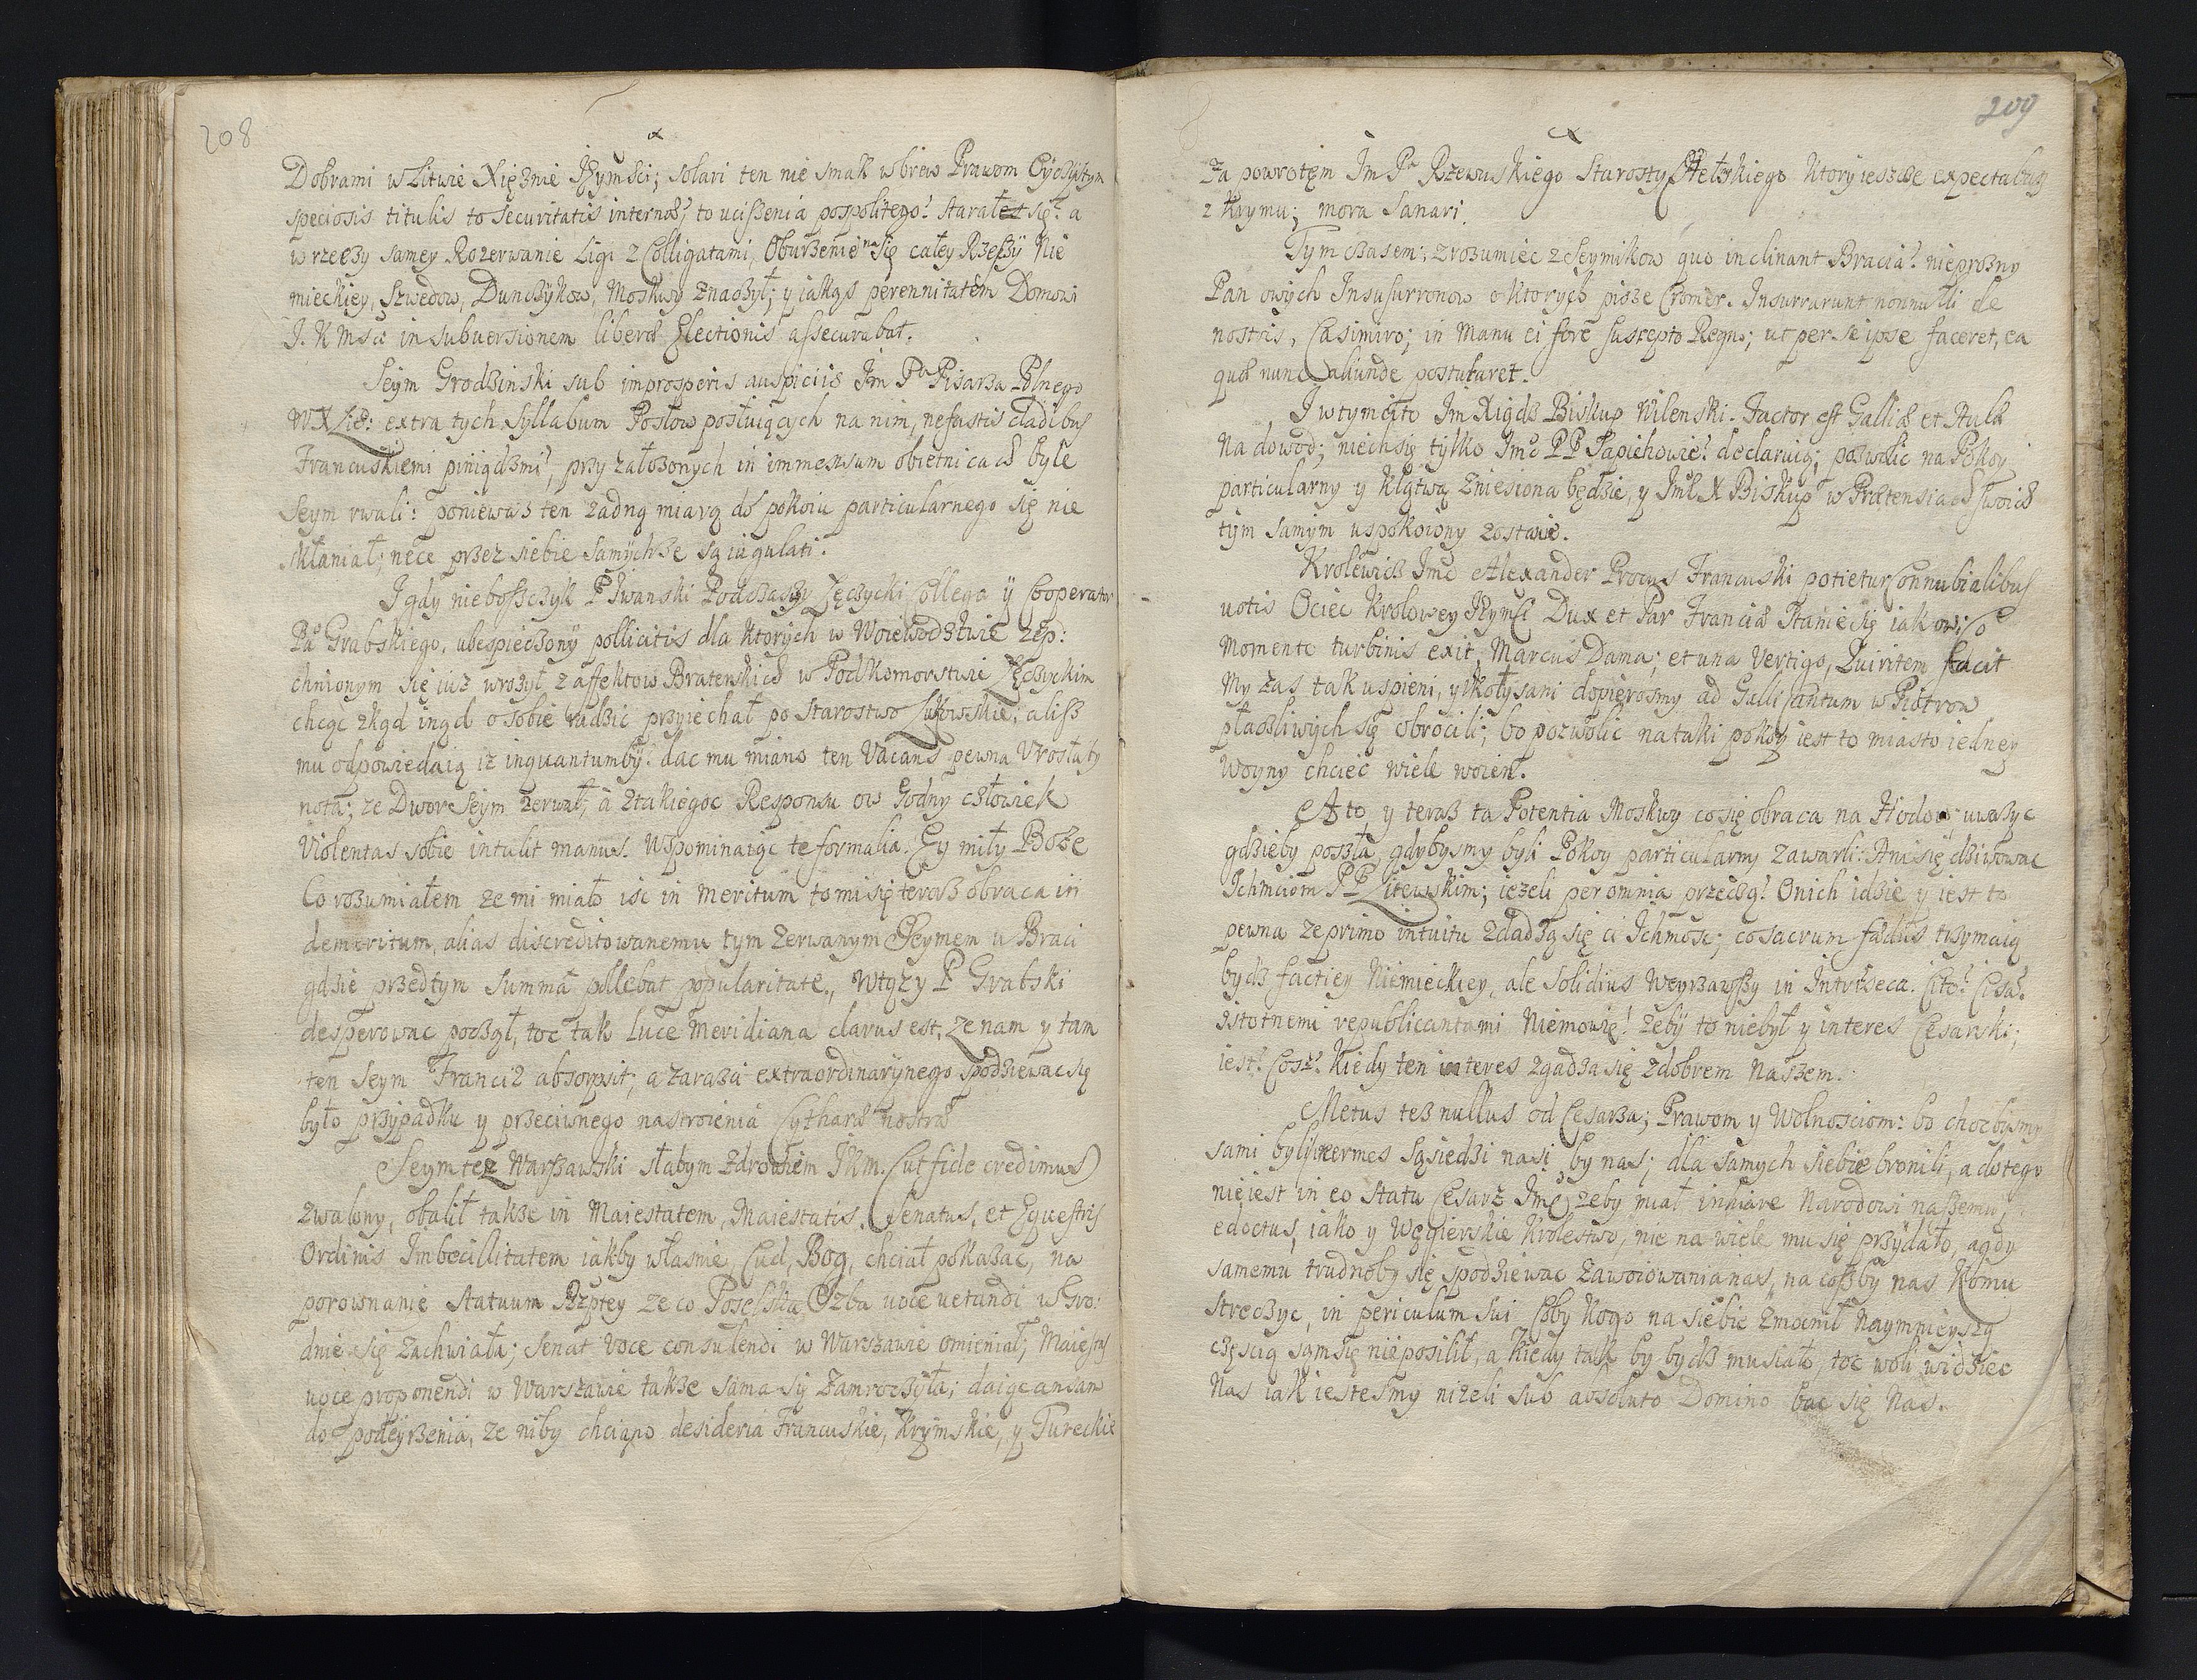 208
Dobrami w Litwie Xiężnie JeyMsci; solari ten nie smak wbrew Prawom Oyczystym
speciosis titulis to securitatis internæ, to uciszenia pospolitego! starałes się! a
w rzeczy samey Rozerwanie Ligi z Colligatami, Oburzenie na się całey Rzeszÿ Nie
mieckiey, Szwedow, Dunczÿkow, Moskwy znaczył; y iakąs perennitatem Domowi
J. K Msci in subversionem liberæ Electionis assecurabat.
Seym Grodzinski sub improsperis auspiciis Im Pa Pisarza Polnego
WXLit: extra tych Syllabum Posłow posłuiących na nim, nefastis cladibus
Francuskiemi piniądzmi, przy założonych in immensum obietnicach byle
Seym rwali: poniewaz ten zadną miarą do pokoiu particularnego się nie
skłaniał; nece przez siebie samÿchze są iugulati.
I gdy niebosczyk P Iwanski Podczaszy Łęczycki Collega ÿ Cooperator
Pa Grabskiego, ubespieczonÿ pollicitis dla ktorych w Woiewodztwie zep:
chnionym się iuz wrożył z affektow Braterskich w Podkomorstwie Łęczyckim
chcąc zkąd inąd o sobie radzic przyiechał po Starostwo Łukowskie; alisz
mu odpowiedaią iz inquantumbÿ dac mu miano ten Vacans pewna Urosłaby
nota; ze Dwor Seym zerwał; a z takiegoc Responsu ow Godny człowiek
Violentas sobie intulit manus. Wspominaiąc te formalia. Ey miły Boze
Co rozumiałem ze mi miało isc in meritum to mi się teraz obraca in
demeritum, alias discreditowanemu tym zerwanym Seymem u Braci
gdzie przedtym summa pollebat popularitate, wtązy P Grabski
desperowac począł, toc tak luce meridiana clarus est, ze nam y tam
ten Seym Francis absorpsit, a zaraza extraordinarÿnego spodziewac się
było przÿpadku y przeciwnego nastroienia Cytharæ nostræ
Seym tez Warszawski słabym zdrowiem JKM. (ut fide credimus)
zwalony, obalił takze in Maiestatem, Maiestatis, Senatus, et Equestris
Ordinis Imbecillitatem iakby własnie, Cud, Bog, chciał pokazac, na
porownanie statuum Rzptey ze co Poselska Izba voce vetandi w Gro:
dnie się zachwiała; Senat voce consulendi w Warszawie omieniał; Maiestas
voce proponendi w Warszawie takze sama sÿ zamroczÿła; daiąc ansam
do podeyrzenia, ze niby chciano desideria Francuskie, Krymskie, y Tureckie
209
Za powrotem Im Pa Rzewuskiego Starosty Chełmskiego ktory ieszcze expectabus
z Krymu; mora sanari.
Tym czasem; zrozumiec z Seymikow quo inclinant Bracia! nieprozny
Pan owych Insusurronow o ktorych pisze Cromer. Insusurrarunt nonnulli de
nostris, Casimiro; in Manu ei fore suscepto Regno; ut per se ipse faceret, ea
quæ nunc aliunde postularet.
I w tymci to Im Xiądz Biskup Wilenski. Factor est Galliæ et Aulæ
Na dowod; niech się tylko Imc PP Sapiehowie! declaruią; pozwolic na Pokoy
particularny y klątwa zniesiona będzie, y Imc X Biskup w Prætensiach swoich
tym samym uspokoiony zostanie.
Krolewicz Imc Alexander Procus Francuski potietur Connubialibus
votis Ociec Krolowey JeyMsci Dux et Par Franciæ stanie się iak ow;
Momento turbinis exit Marcus Dama; et una Vertigo, Quiritem facit
My zas tak uspieni, y ukołysani dopierosmy ad Galli Cantum w Piotrow
płaczliwych się obrocili; bo pozwolic na taki pokoy iest to miasto iedney
Woyny chciec wiele woien.
A to, y teraz ta Potentia Moskwy co się obraca na Hordow uwazyc
gdzieby poszła, gdybysmy byli Pokoy particularny zawarli: Ani się dziwowac
Ichmciom PP Litewskim; iezeli per omnia przeczą! Onich idzie y iest to
pewna ze primo intuitu zdadzą się ci Ichmosc; co sacrum fœdus trzymaią
bydz factiey Niemieckiey, ale solidius weyrzawszy in Intrinseca. Ci to! Ci są!
istotnemi republicantami Niemowię! zeby to niebył y interes Cesarski;
iest! Cosz! kiedy ten interes zgadza się z dobrem Naszem.
Metus tez nullus od Cesarza; Prawom y Wolnosciom: bo chocbysmy
sami byli inermes Sąsiedzi nasi, by nas; dla samych siebie bronili, a do tego
nie iest in eo statu Cesarz Imc zeby miał inhiare Narodowi naszemu;
edoctus, iako y Węgierskie Krolestwo, nie na wiele mu się przÿdało, a gdy
samemu trudnoby się spodziewac zawoiowania nas, na coszby nas komu
stręczyc, in periculum sui coby kogo na siebie zmocnił Naymnieyszą
częscią sam się nieposilił, a kiedy tak by bydz musiało, toc woli widziec
Nas iak iestesmy nizeli sub absoluto Domino bac się Nas.